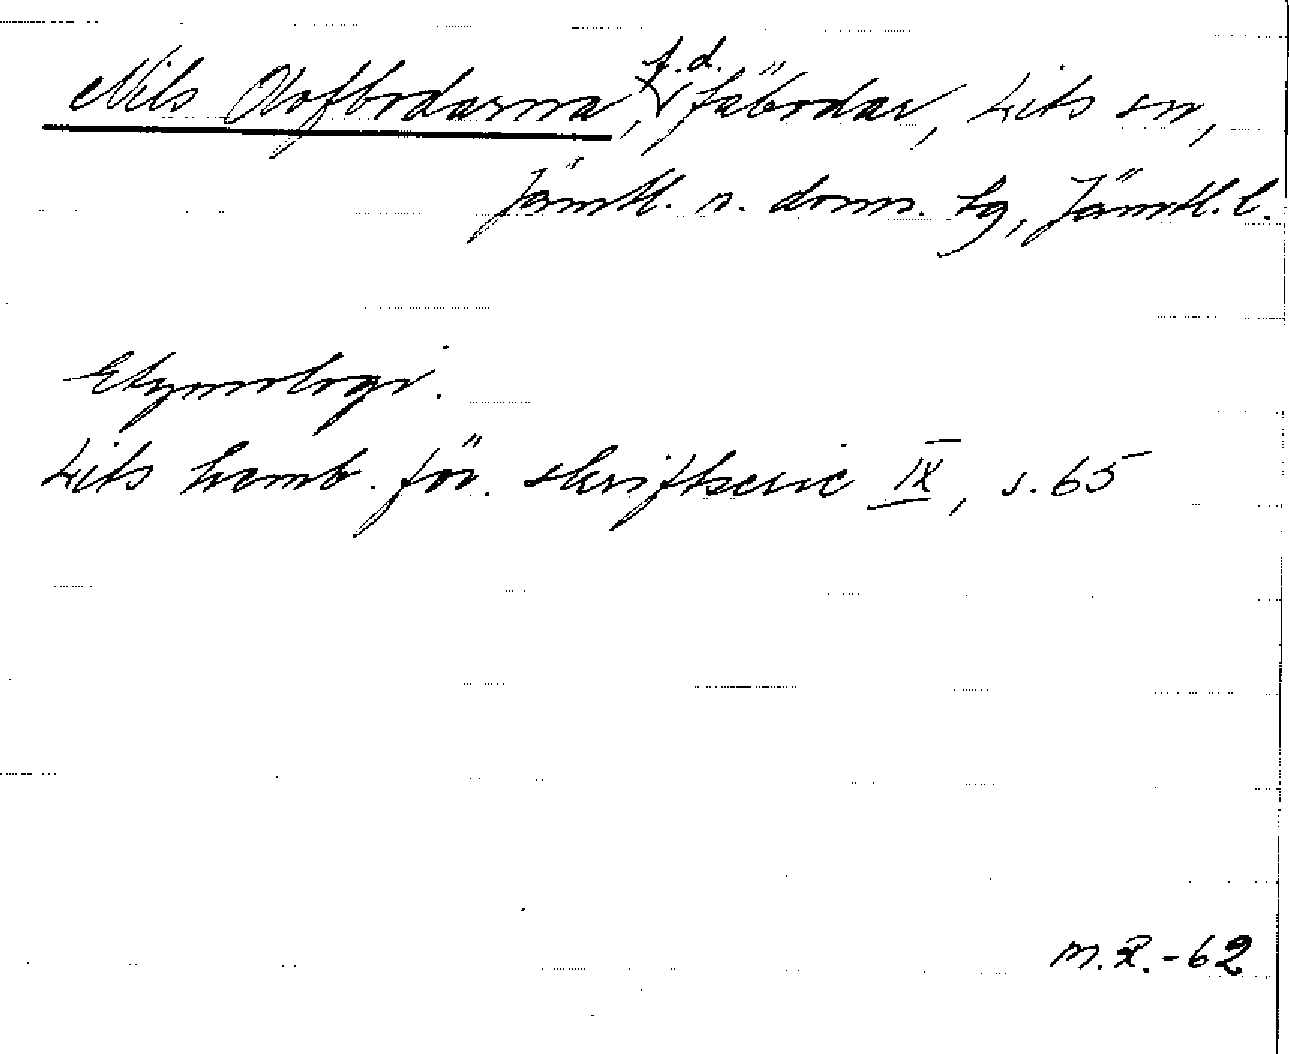 Nils Olofbodarna, f.d. fäbodar, Lits sn,
Jämtl. n. doms. tg, Jämtl. l.
Etymologi.
Lits hemb. för. skriftserie IX, s. 65
M.R.-62